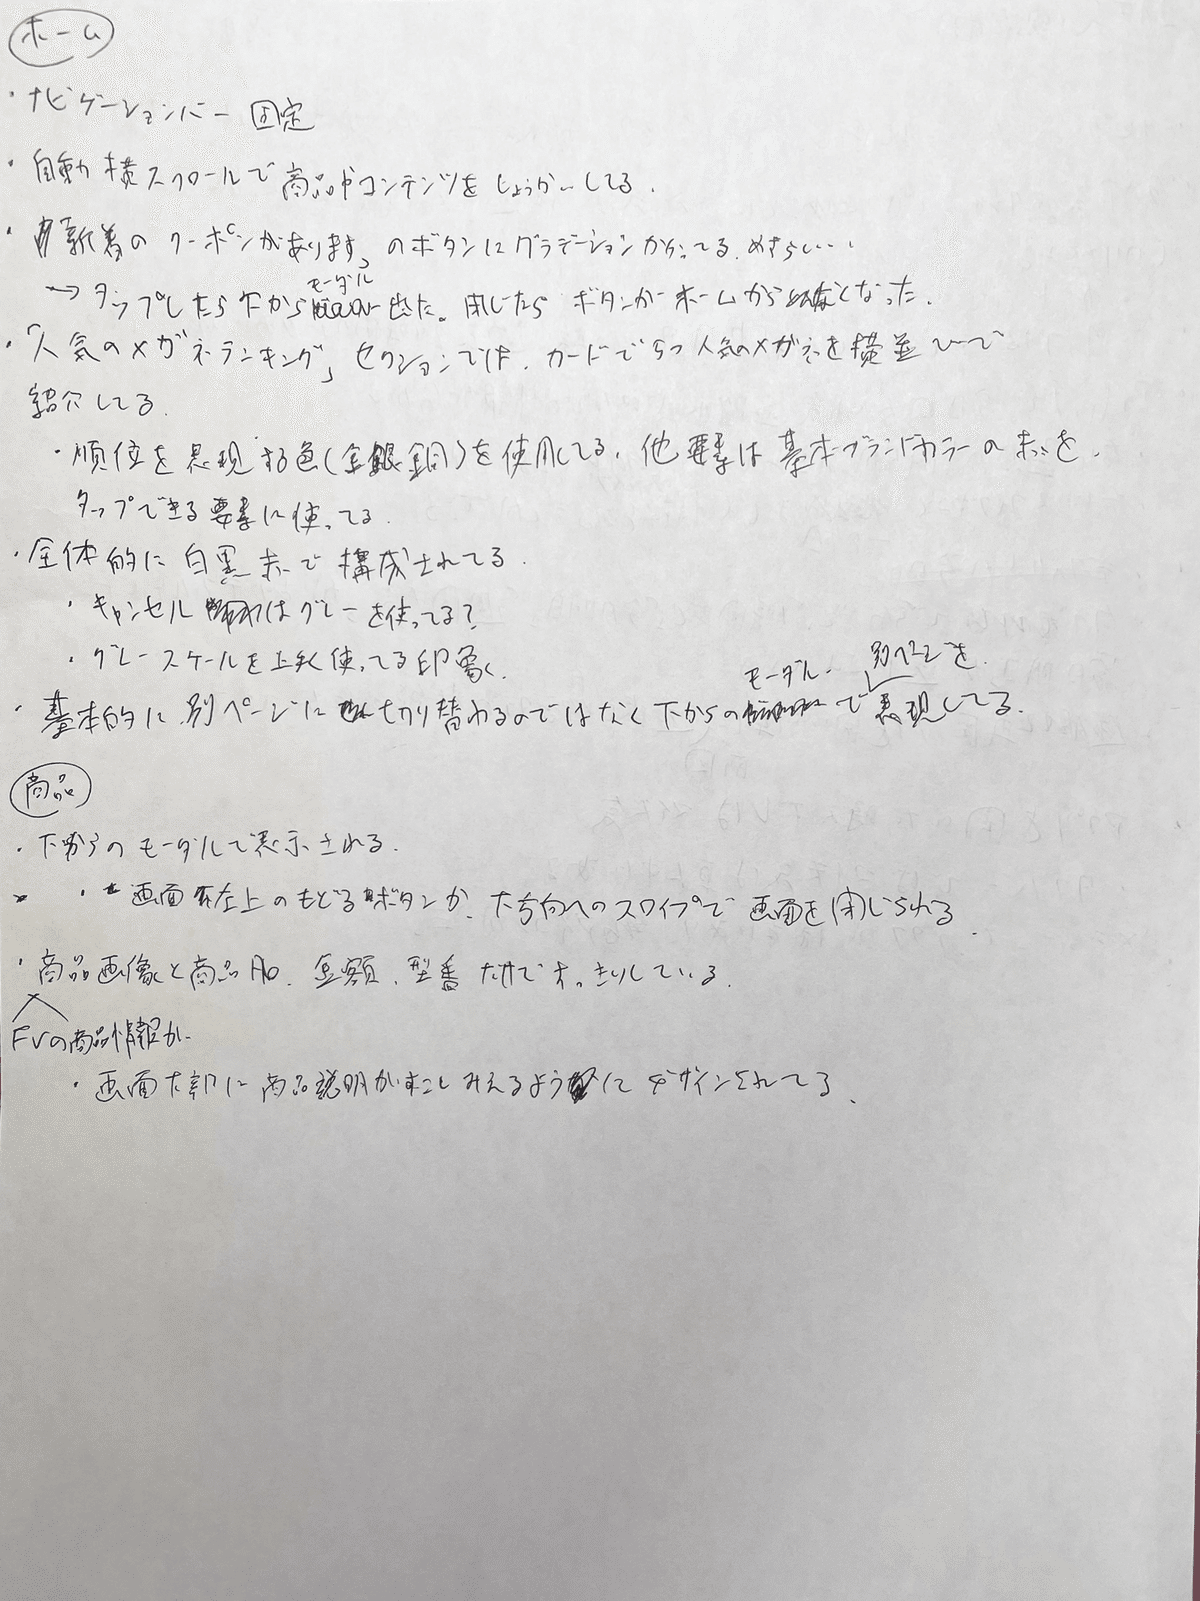 ホーム
・ナビゲーションバー 固定
・自動横スクロールで商品やコンテンツをしょうかいしてる.
・新着のクーポンがあります」のボタンにグラデーションかかってる.めずらしい…
→ タップしたら下からモーダル出た。閉じたらボタンがホームからなくなった.
・「人気のメガネランキング」セクションでは、カードで5つ人気のメガネを横並びで
紹介してる.
・順位を表現する色(金銀銅)を使用してる、他要素は基本ブランドカラーの赤を、
タップできる要素に使ってる.
・全体的に白黒赤で構成されてる.
・キャンセルはグレーを使ってる?
・グレースケールを上手く使ってる印象.
・基本的に別ページに切り替わるのではなく下からのモーダルで別ページを表現してる.
商品
・下からのモーダルで表示される.
・画面左上のもどるボタンか、下方向へのスワイプで画面を閉じられる.
・商品画像と商品名、金額、型番だけですっきりしている.
FVの商品情報が
・画面下部に商品説明がすこしみえるようにデザインされてる.